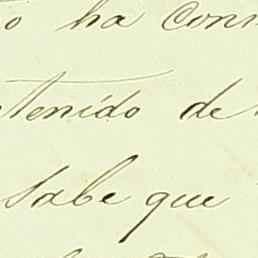 o ha con
tenido de
sabe que